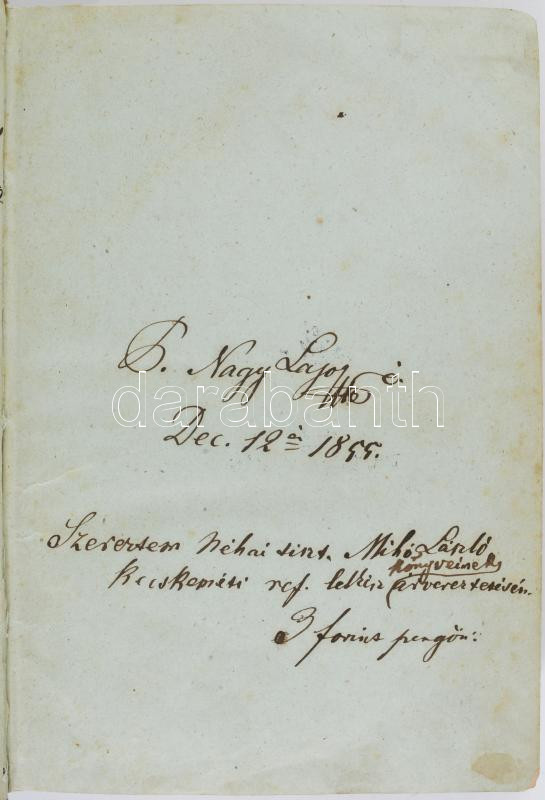 P. Nagy Lajos é.
darabanth
Dec. 12én 1855.
Szereztem néhai tiszt. Mihó László
könyveinek
Kecskeméti ref. lelkész árvereztetésén.
3 forint pengőn.